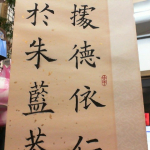 據德依仁
於朱藍